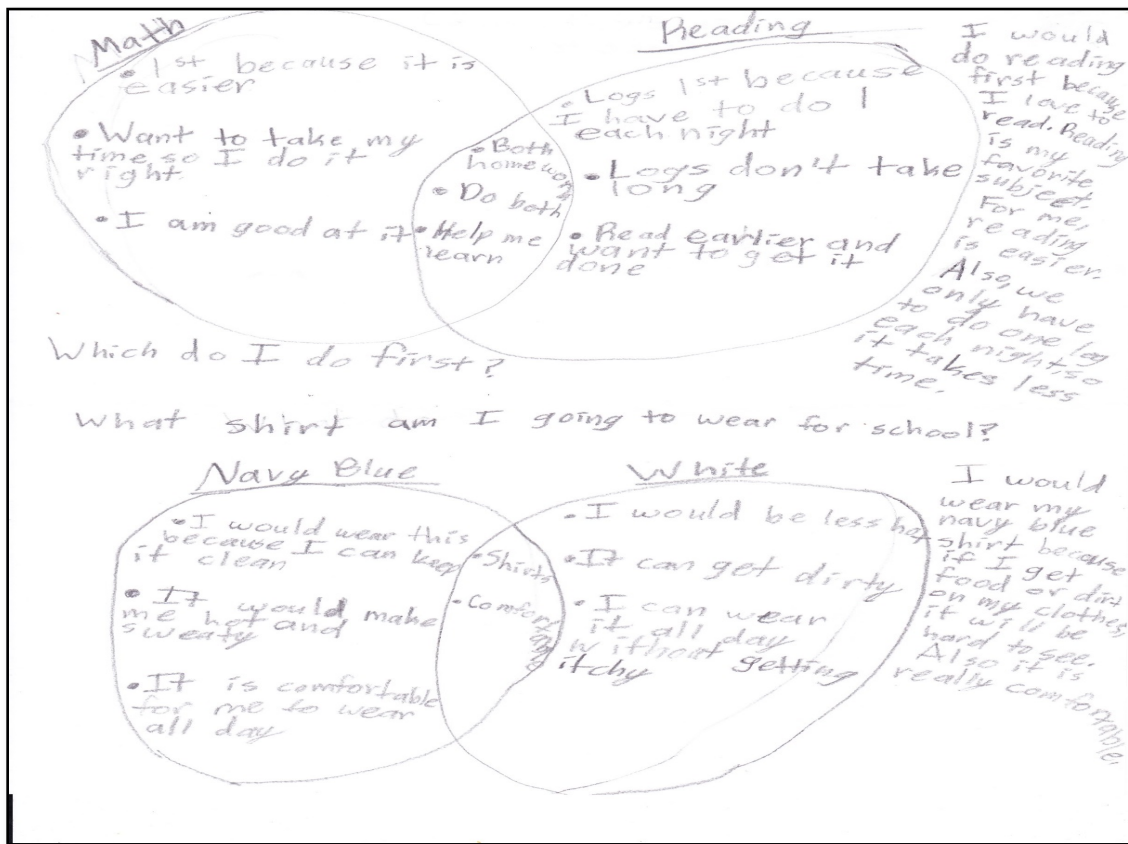 Math
• 1st because it is
easier
• Want to take my
time so I do it
right.
• I am good at it
• Both
homework
• Do both
• Help me
learn
Reading
• Logs 1st because
I have to do 1
each night
• Logs don't take
long
• Read earlier and
want to get it
done
I would
do reading
first because
I love to
read. Reading
is my
favorite
subject.
For me,
reading
is easier.
Also, we
only have
to do one log
each night so
it takes less
time.
Which do I do first?
What shirt am I going to wear for school?
Navy Blue
• I would wear this
because I can keep
it clean
• It would make
me hot and
sweaty
• It is comfortable
for me to wear
all day
• Shirts
• Comfortable
White
• I would be less hot
• It can get dirty
• I can wear
it all day
without getting
itchy
I would
wear my
navy blue
shirt because
if I get
food or dirt
on my clothes,
it will be
hard to see.
Also it is
really comfortable.